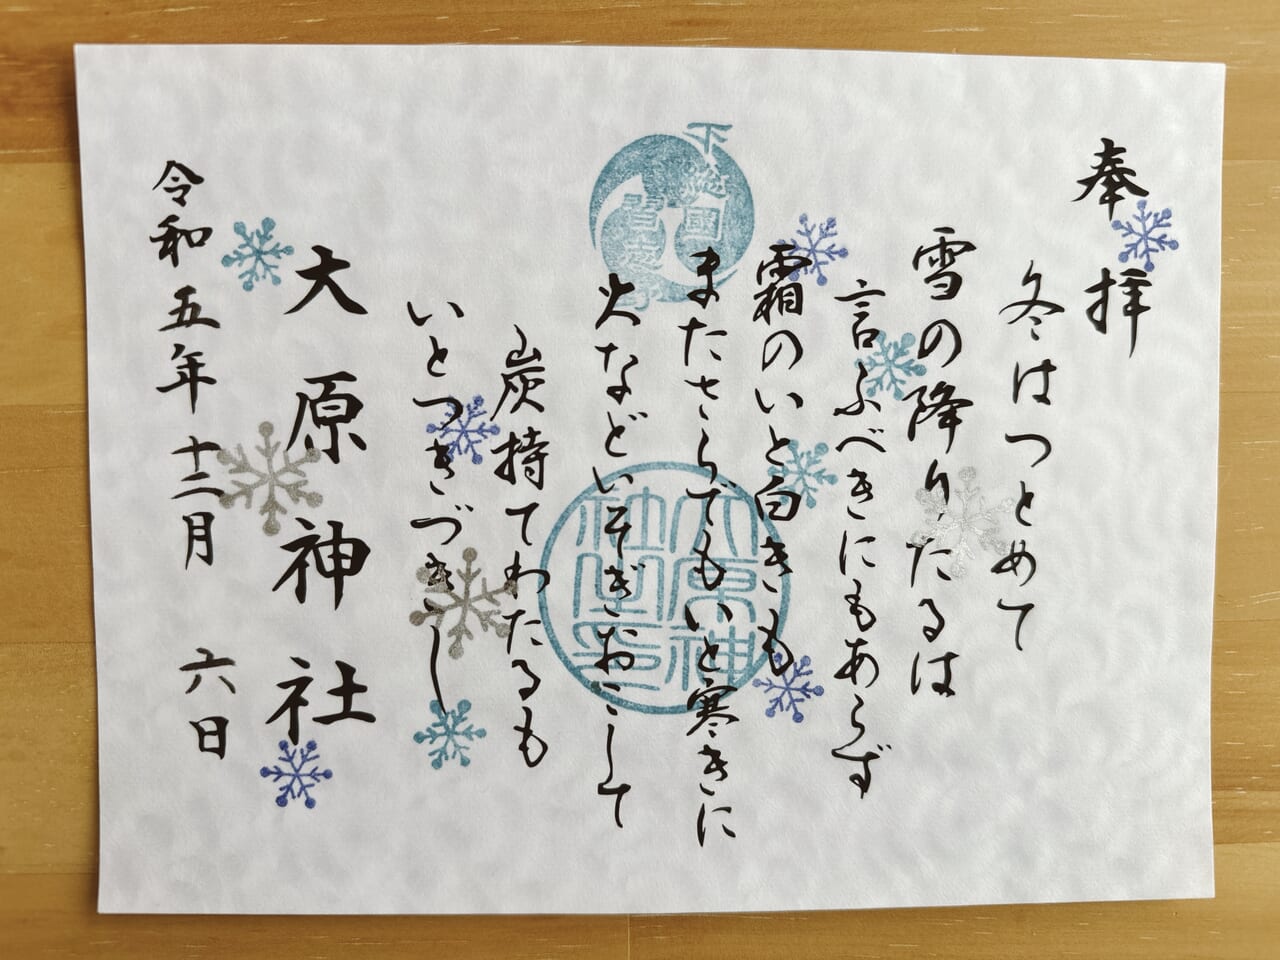 奉拝
冬はつとめて
雪の降りたるは
言ふべきにもあらず
霜のいと白きも
またさらでもいと寒きに
火などいそぎおこして
炭持てわたるも
いとつきづきし
大原神社
令和五年十二月六日
下総國
習志野
大原神
社之印